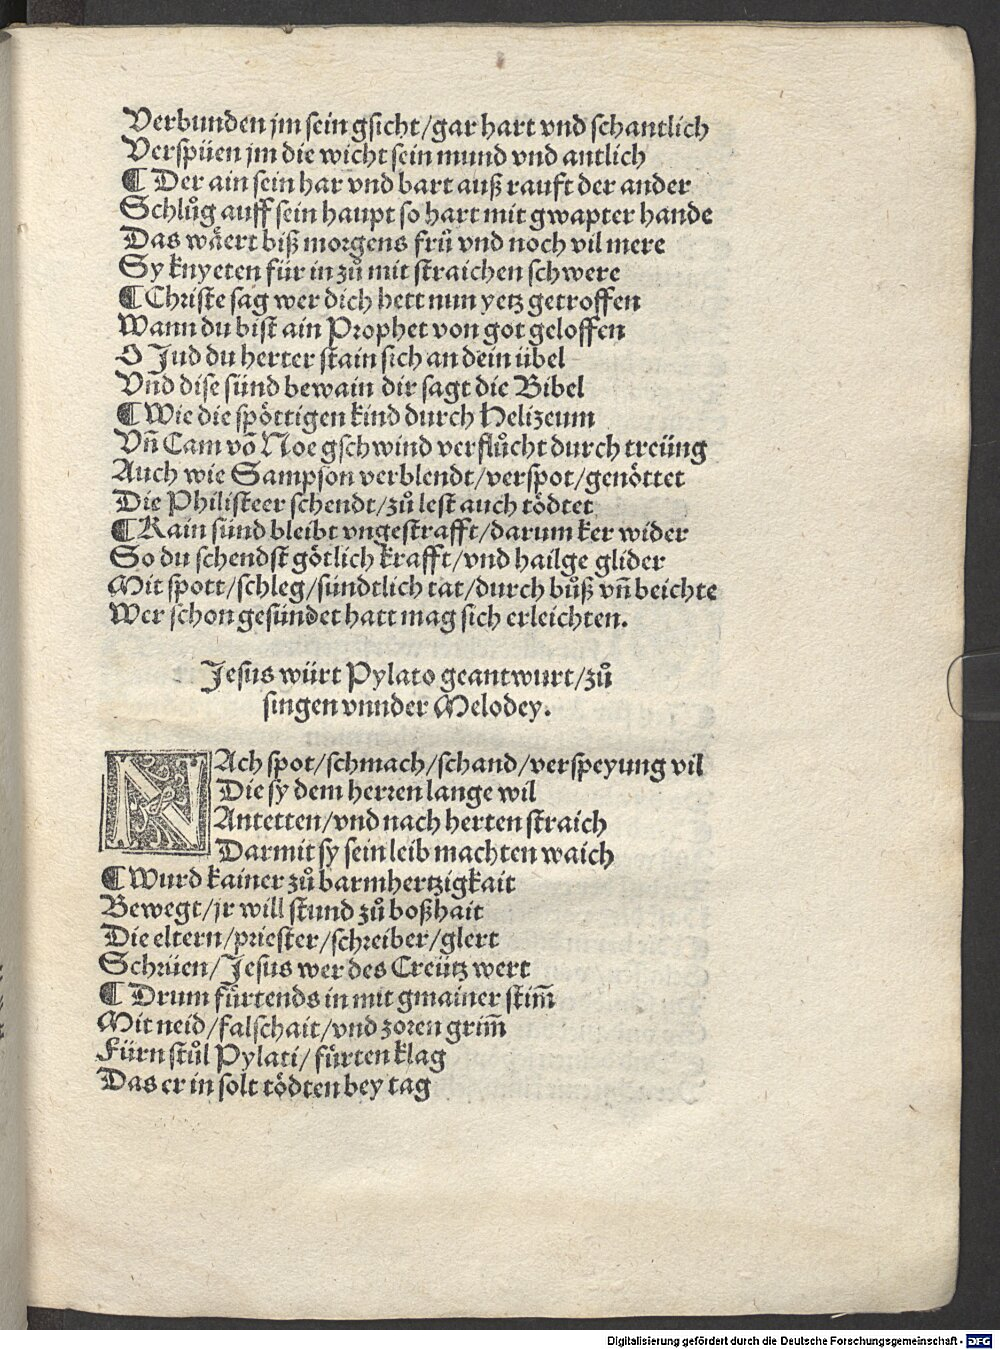 Verbunden jm sein gsicht/gar hart vnd schantlich
Verspüen jm die wicht sein mund vnd antlich
¶ Der ain sein har vnd bart auß rauft der ander
Schlůg auff sein haupt so hart mit gwapter hande
Das wäert biß morgens frü vnd noch vil mere
Sy knyeten für in zů mit straichen schwere
¶ Christe sag wer dich hett nun yetz getroffen
Wann du bist ain Prophet von got geloffen
O Jud du herter stain sich an dein übel
Vnd dise sünd bewain dir sagt die Bibel
¶ Wie die spöttigen kind durch Helizeum
Vn̄ Cam vō Noe gschwind verflůcht durch treüng
Auch wie Sampson verblendt/verspot/genöttet
Die Philisteer schendt/zů lest auch tödtet
¶ Kain sünd bleibt vngestrafft/darum ker wider
So du schendst götlich krafft/vnd hailge glider
Mit spott/schleg/sündtlich tat/durch bůß vn̄ beichte
Wer schon gesündet hatt mag sich erleichten.
Jesus würt Pylato geantwurt/zů
singen vnnder Melodey.
NAch spot/schmach/schand/verspeyung vil
Die sy dem herren lange wil
Antetten/vnd nach herten straich
Darmit sy sein leib machten waich
¶ Wurd kainer zů barmhertzigkait
Bewegt/jr will stund zů boßhait
Die eltern/priester/schreiber/glert
Schrüen/Jesus wer des Creütz wert
¶ Drum fürtends in mit gmainer stim̄
Mit neid/falschait/vnd zoren grim̄
Fürn stůl Pylati/fürten klag
Das er in solt tödten bey tag
Digitalisierung gefördert durch die Deutsche Forschungsgemeinschaft - DFG